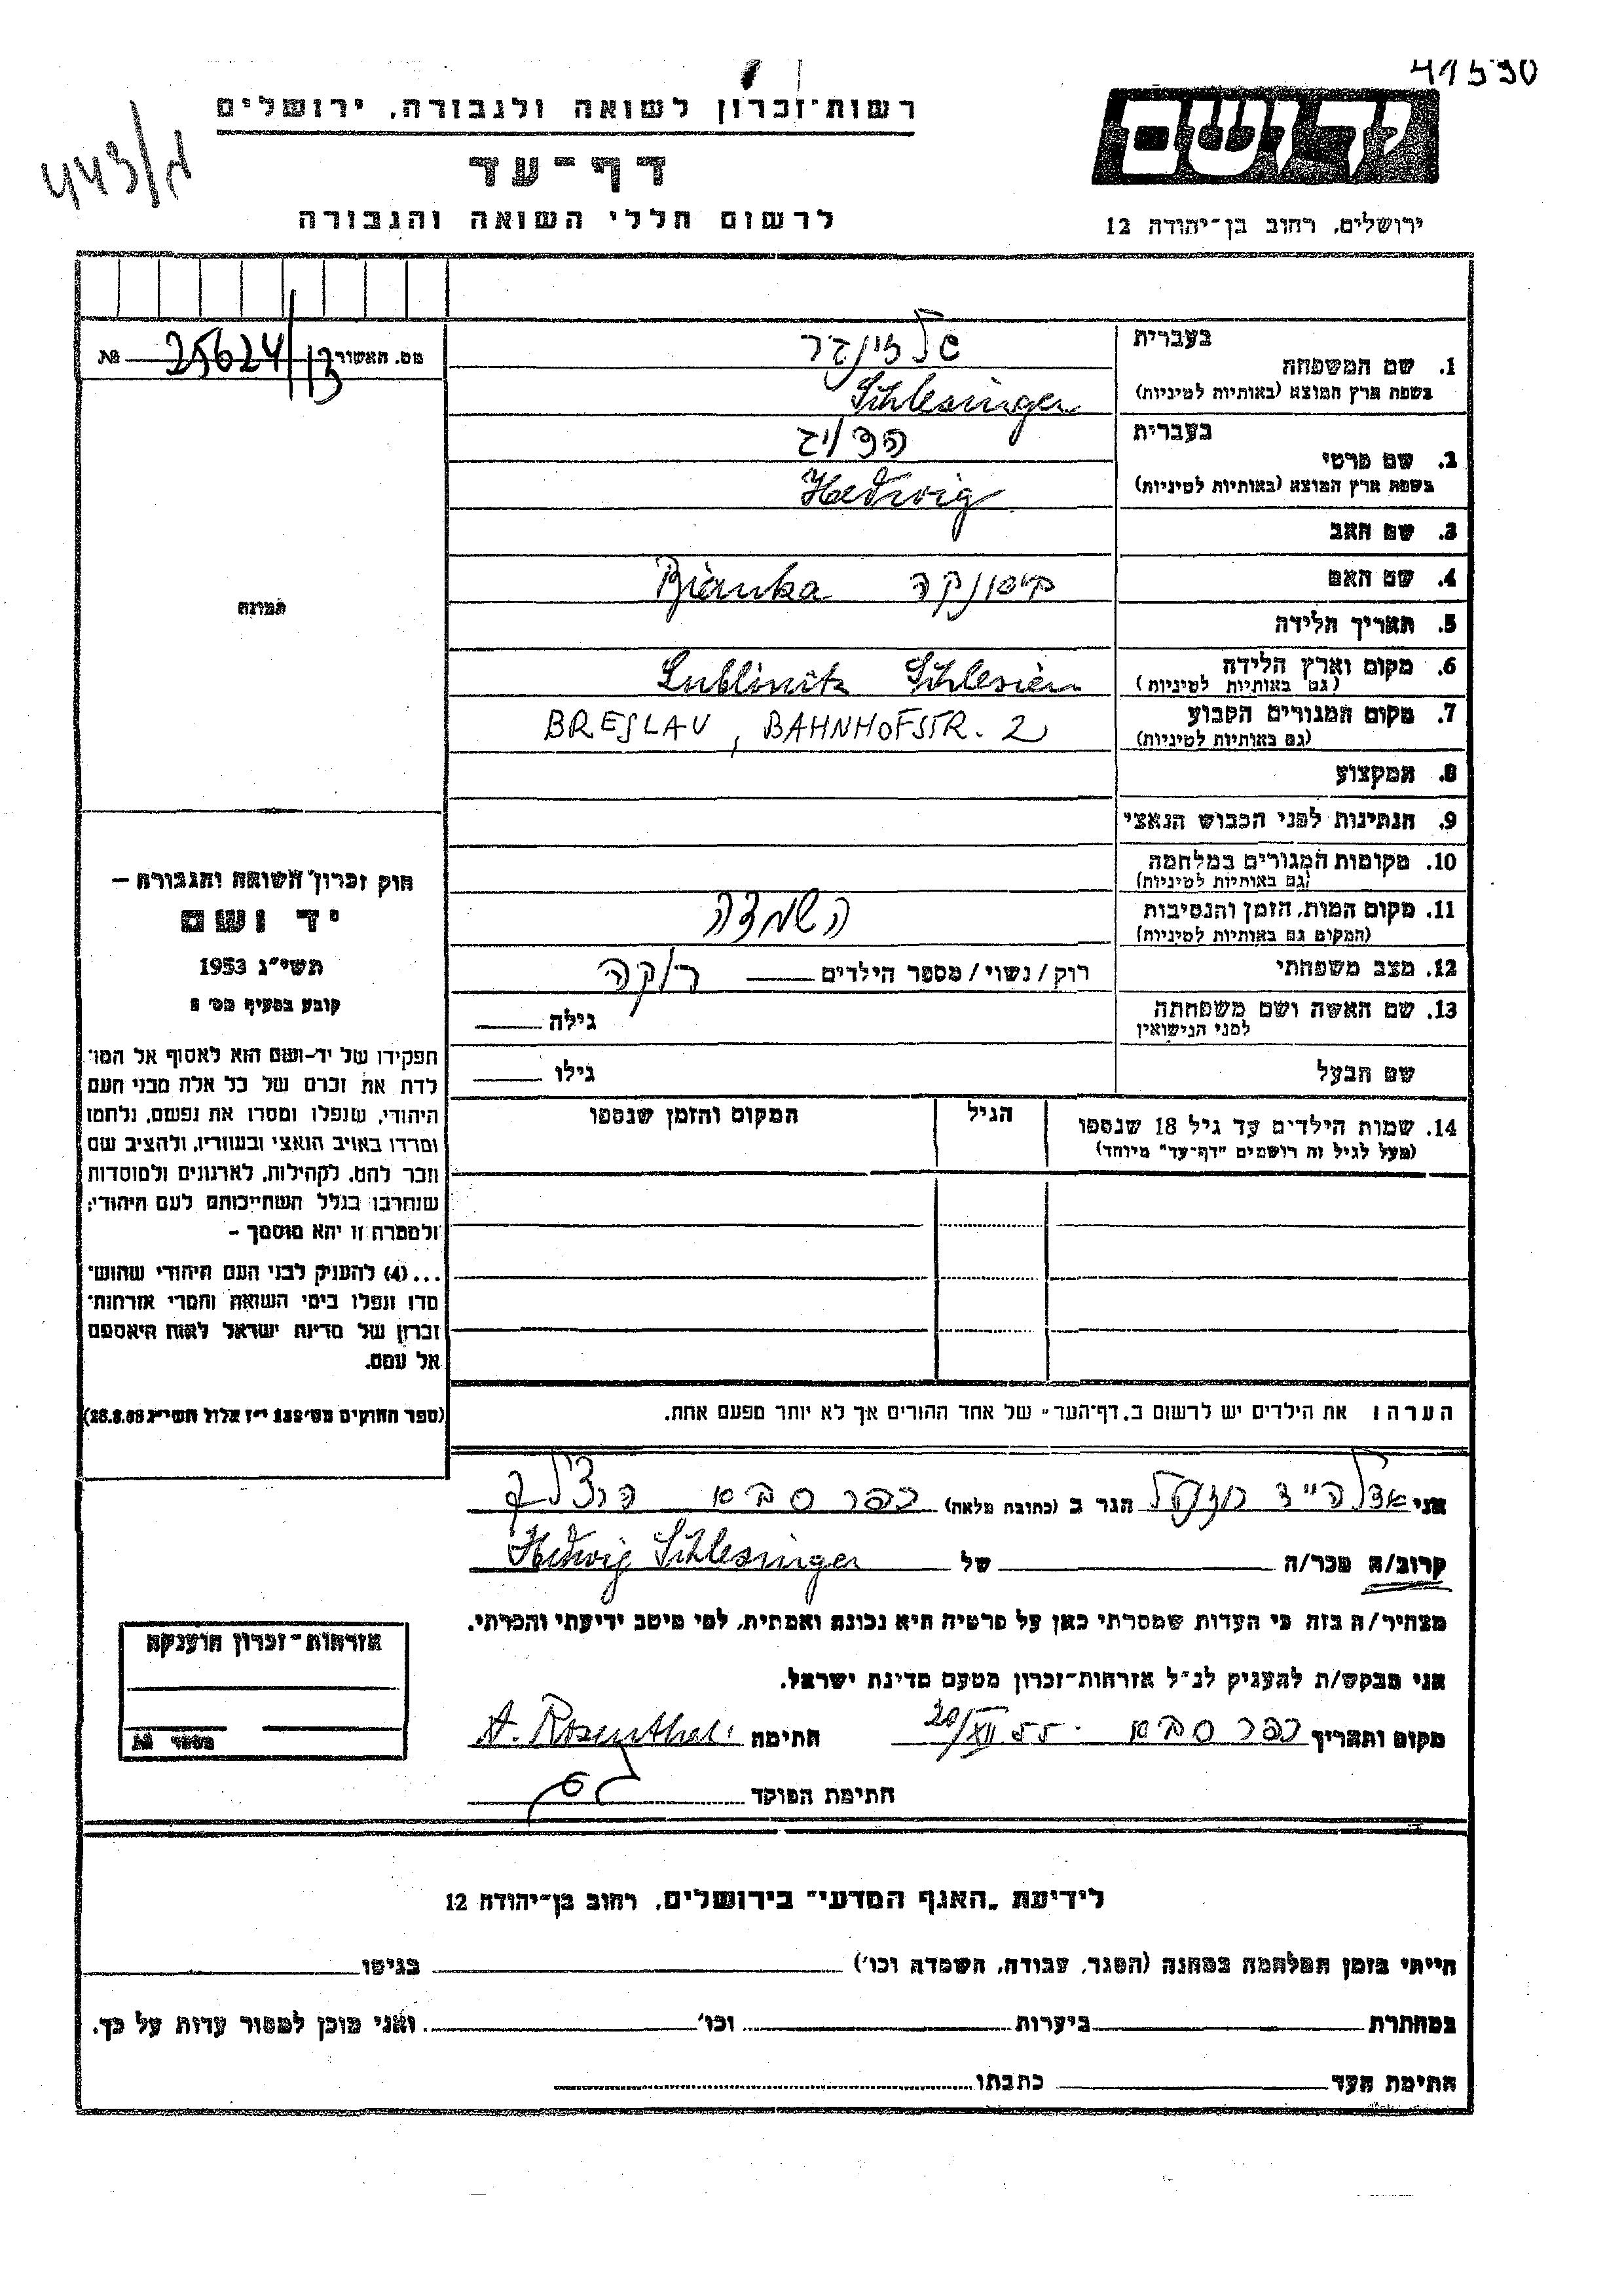 41590
443/ג
רשות־זכרון לשואה ולגבורה, ירושלים
דף־עד
לרשום חללי השואה והגבורה
יד ושם
ירושלים, רחוב בן־יהודה 12
מס. האשור 25624/13 №
תמונה
1. שם המשפחה
בעברית שלזינגר
בשפת ארץ המוצא (באותיות לטיניות) Schlesinger
2. שם פרטי
בעברית הדויג
בשפת ארץ המוצא (באותיות לטיניות) Hedwig
3. שם האב
4. שם האם ביאנקה Bianka
5. תאריך הלידה
6. מקום וארץ הלידה Lublinitz Schlesien
(גם באותיות לטיניות)
7. מקום המגורים הקבוע BRESLAU, BAHNHOFSTR. 2
(גם באותיות לטיניות)
8. המקצוע
9. הנתינות לפני הכבוש הנאצי
10. מקומות המגורים במלחמה
(גם באותיות לטיניות)
11. מקום המות, הזמן והנסיבות השמדה
(המקום גם באותיות לטיניות)
12. מצב משפחתי רוק / נשוי / מספר הילדים רוקה
13. שם האשה ושם משפחתה גילה
לפני הנישואין
שם הבעל גילו
14. שמות הילדים עד גיל 18 שנספו הגיל המקום והזמן שנספו
(מעל לגיל זה רושמים "דף־עד" מיוחד)
הערה: את הילדים יש לרשום ב„דף־העד" של אחד ההורים אך לא יותר מפעם אחת.
חוק זכרון השואה והגבורה –
יד ושם
תשי"ג 1953
קובע בסעיף מס' 2
תפקידו של יד-ושם הוא לאסוף אל המו־
לדת את זכרם של כל אלה מבני העם
היהודי, שנפלו ומסרו את נפשם, נלחמו
ומרדו באויב הנאצי ובעוזריו, ולהציב שם
וזכר להם, לקהילות, לארגונים ולמוסדות
שנחרבו בגלל השתייכותם לעם היהודי;
ולמטרה זו יהא מוסמך –
...(4) להעניק לבני העם היהודי שהוש־
מדו ונפלו בימי השואה והמרי אזרחות־
זכרון של מדינת ישראל לאות היאספם
אל עמם.
(ספר החוקים מס' 132 י"ז אלול תשי"ג 28.8.53)
אני הגר ב (כתובת מלאה) כפר סבא
קרוב/ה מכר/ה של Hedwig Schlesinger
מצהיר/ה בזה כי העדות שמסרתי כאן על פרטיה היא נכונה ואמתית, לפי מיטב ידיעתי והכרתי.
אני מבקש/ת להעניק לנ"ל אזרחות־זכרון מטעם מדינת ישראל.
מקום ותאריך כפר סבא 20/XII 55 חתימה A. Rosenthal
חתימת הפוקד
אזרחות־זכרון הוענקה
מספר №
לידיעת „האגף המדעי" בירושלים, רחוב בן־יהודה 12
הייתי בזמן המלחמה במחנה (הסגר, עבודה, השמדה וכו') בגיטו
במחתרת ביערות וכו' ואני מוכן למסור עדות על כך.
חתימת העד כתבתו